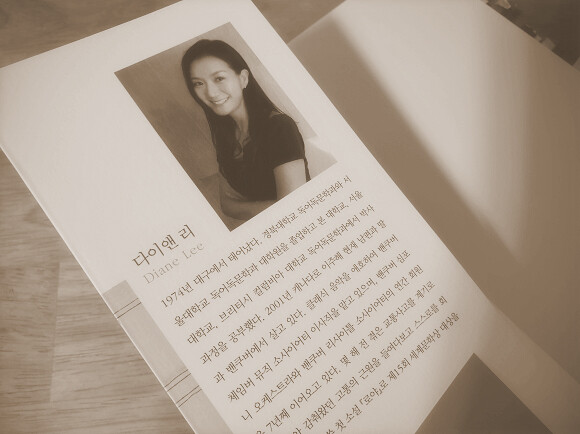 다이앤 리
Diane Lee
1974년 대구에서 태어났다. 경북대학교 독어독문학과와 서
울대학교 독어독문학과 대학원을 졸업하고 본 대학교, 서울
대학교, 브리티시 컬럼비아 대학교 독어독문학과에서 박사
과정을 공부했다. 2001년 캐나다로 이주해 현재 남편과 딸
과 밴쿠버에서 살고 있다. 클래식 음악을 애호하여 밴쿠버
체임버 뮤직 소사이어티 이사직을 맡고 있으며, 밴쿠버 심포
니 오케스트라와 밴쿠버 리사이틀 소사이어티의 열성 회원
을 7년째 이어오고 있다. 몇 해 전 겪은 교통사고를 계기로
감춰왔던 고통의 근원을 돌아보고 스스로를 회
쓴 첫 소설 『로야』로 제15회 세계문학상 대상을